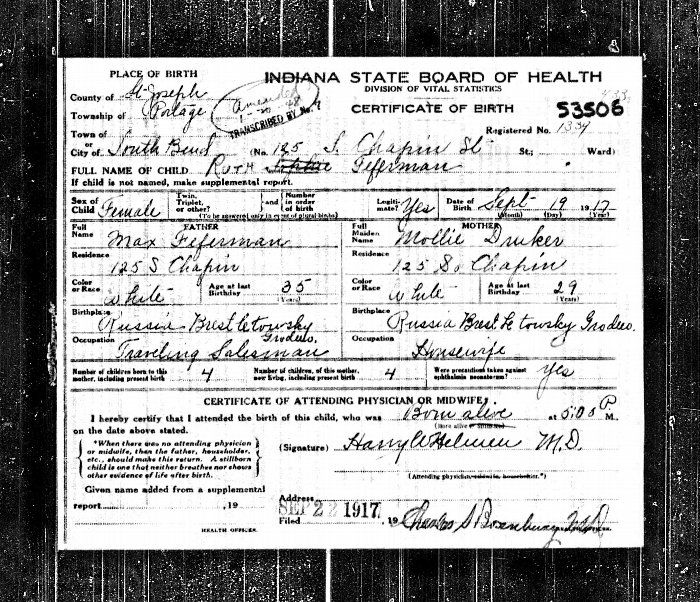 PLACE OF BIRTH
INDIANA STATE BOARD OF HEALTH
DIVISION OF VITAL STATISTICS
County of St Joseph
CERTIFICATE OF BIRTH
53506
Township of Portage
amended
1-20-48
TRANSCRIBED BY No.
Town of
or
Registered No. 1334
City of South Bend (No. 125 S. Chapin St St.; Ward)
FULL NAME OF CHILD Ruth Sophie Feferman
If child is not named, make supplemental report.
Sex of Child Female
Twin, Triplet, or other?
and
Number in order of birth
(To be answered only in event of plural births)
Legitimate? Yes
Date of Birth Sept 19 1917
(Month) (Day) (Year)
FATHER
Full Name Max Feferman
Residence
125 S Chapin
Color or Race White
Age at last Birthday 35
(Years)
Birthplace
Russia Brest Letowsky Grodno.
Occupation
Traveling Salesman
MOTHER
Full Maiden Name Mollie Druker
Residence
125 So Chapin
Color or Race White
Age at last Birthday 29
(Years)
Birthplace
Russia Brest Le towsky Grodno.
Occupation
Housewife
Number of children born to this mother, including present birth 4
Number of children, of this mother, now living, including present birth 4
Were precautions taken against ophthalmia neonatorum? yes
CERTIFICATE OF ATTENDING PHYSICIAN OR MIDWIFE.
I hereby certify that I attended the birth of this child, who was Born alive at 5:00 P M.
(Born alive or stillborn)
on the date above stated.
*When there was no attending physician
or midwife, then the father, householder,
etc., should make this return. A stillborn
child is one that neither breathes nor shows
other evidence of life after birth.
(Signature) Harry M.D.
(Attending physician, midwife, householder.*)
Given name added from a supplemental
report ,19
HEALTH OFFICER.
Address
Filed SEP 22 1917, 19 Charles S Bosenbury MD